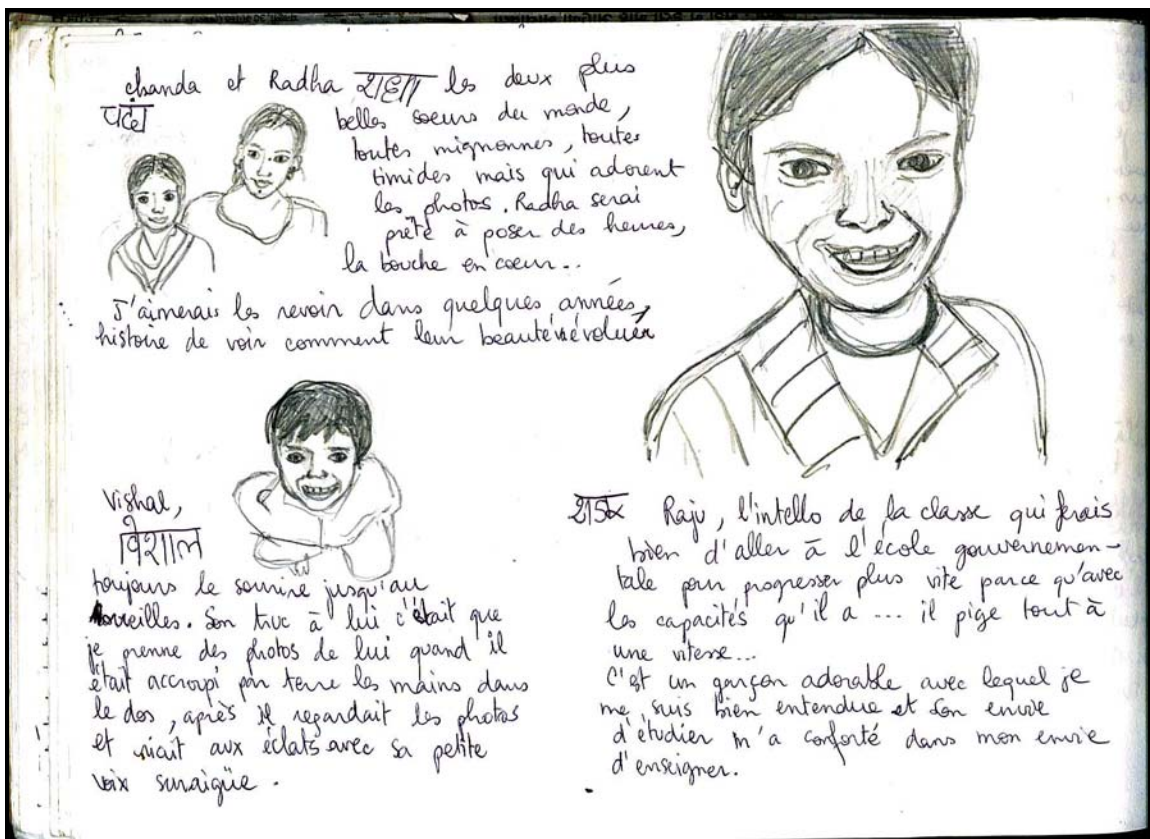 chanda et Radha राधा les deux plus
चंदा
belles soeurs du monde,
toutes mignonnes, toutes
timides mais qui adorent
les photos. Radha serai
prête à poser des heures,
la bouche en coeur...
J'aimerais les revoir dans quelques années,
histoire de voir comment leur beauté évoluer
Vishal,
विशाल
toujours le sourire jusqu'au
oreilles. Son truc à lui c'était que
je prenne des photos de lui quand il
était accroupi par terre les mains dans
le dos, après il regardait les photos
et riait aux éclats avec sa petite
voix suraigüe.
Raju, l'intello de la classe qui ferais
bien d'aller à l'école gouvernemen-
tale pour progresser plus vite parce qu'avec
les capacités qu'il a ... il pige tout à
une vitesse...
C'est un garçon adorable avec lequel je
me suis bien entendue et son envie
d'étudier m'a conforté dans mon envie
d'enseigner.